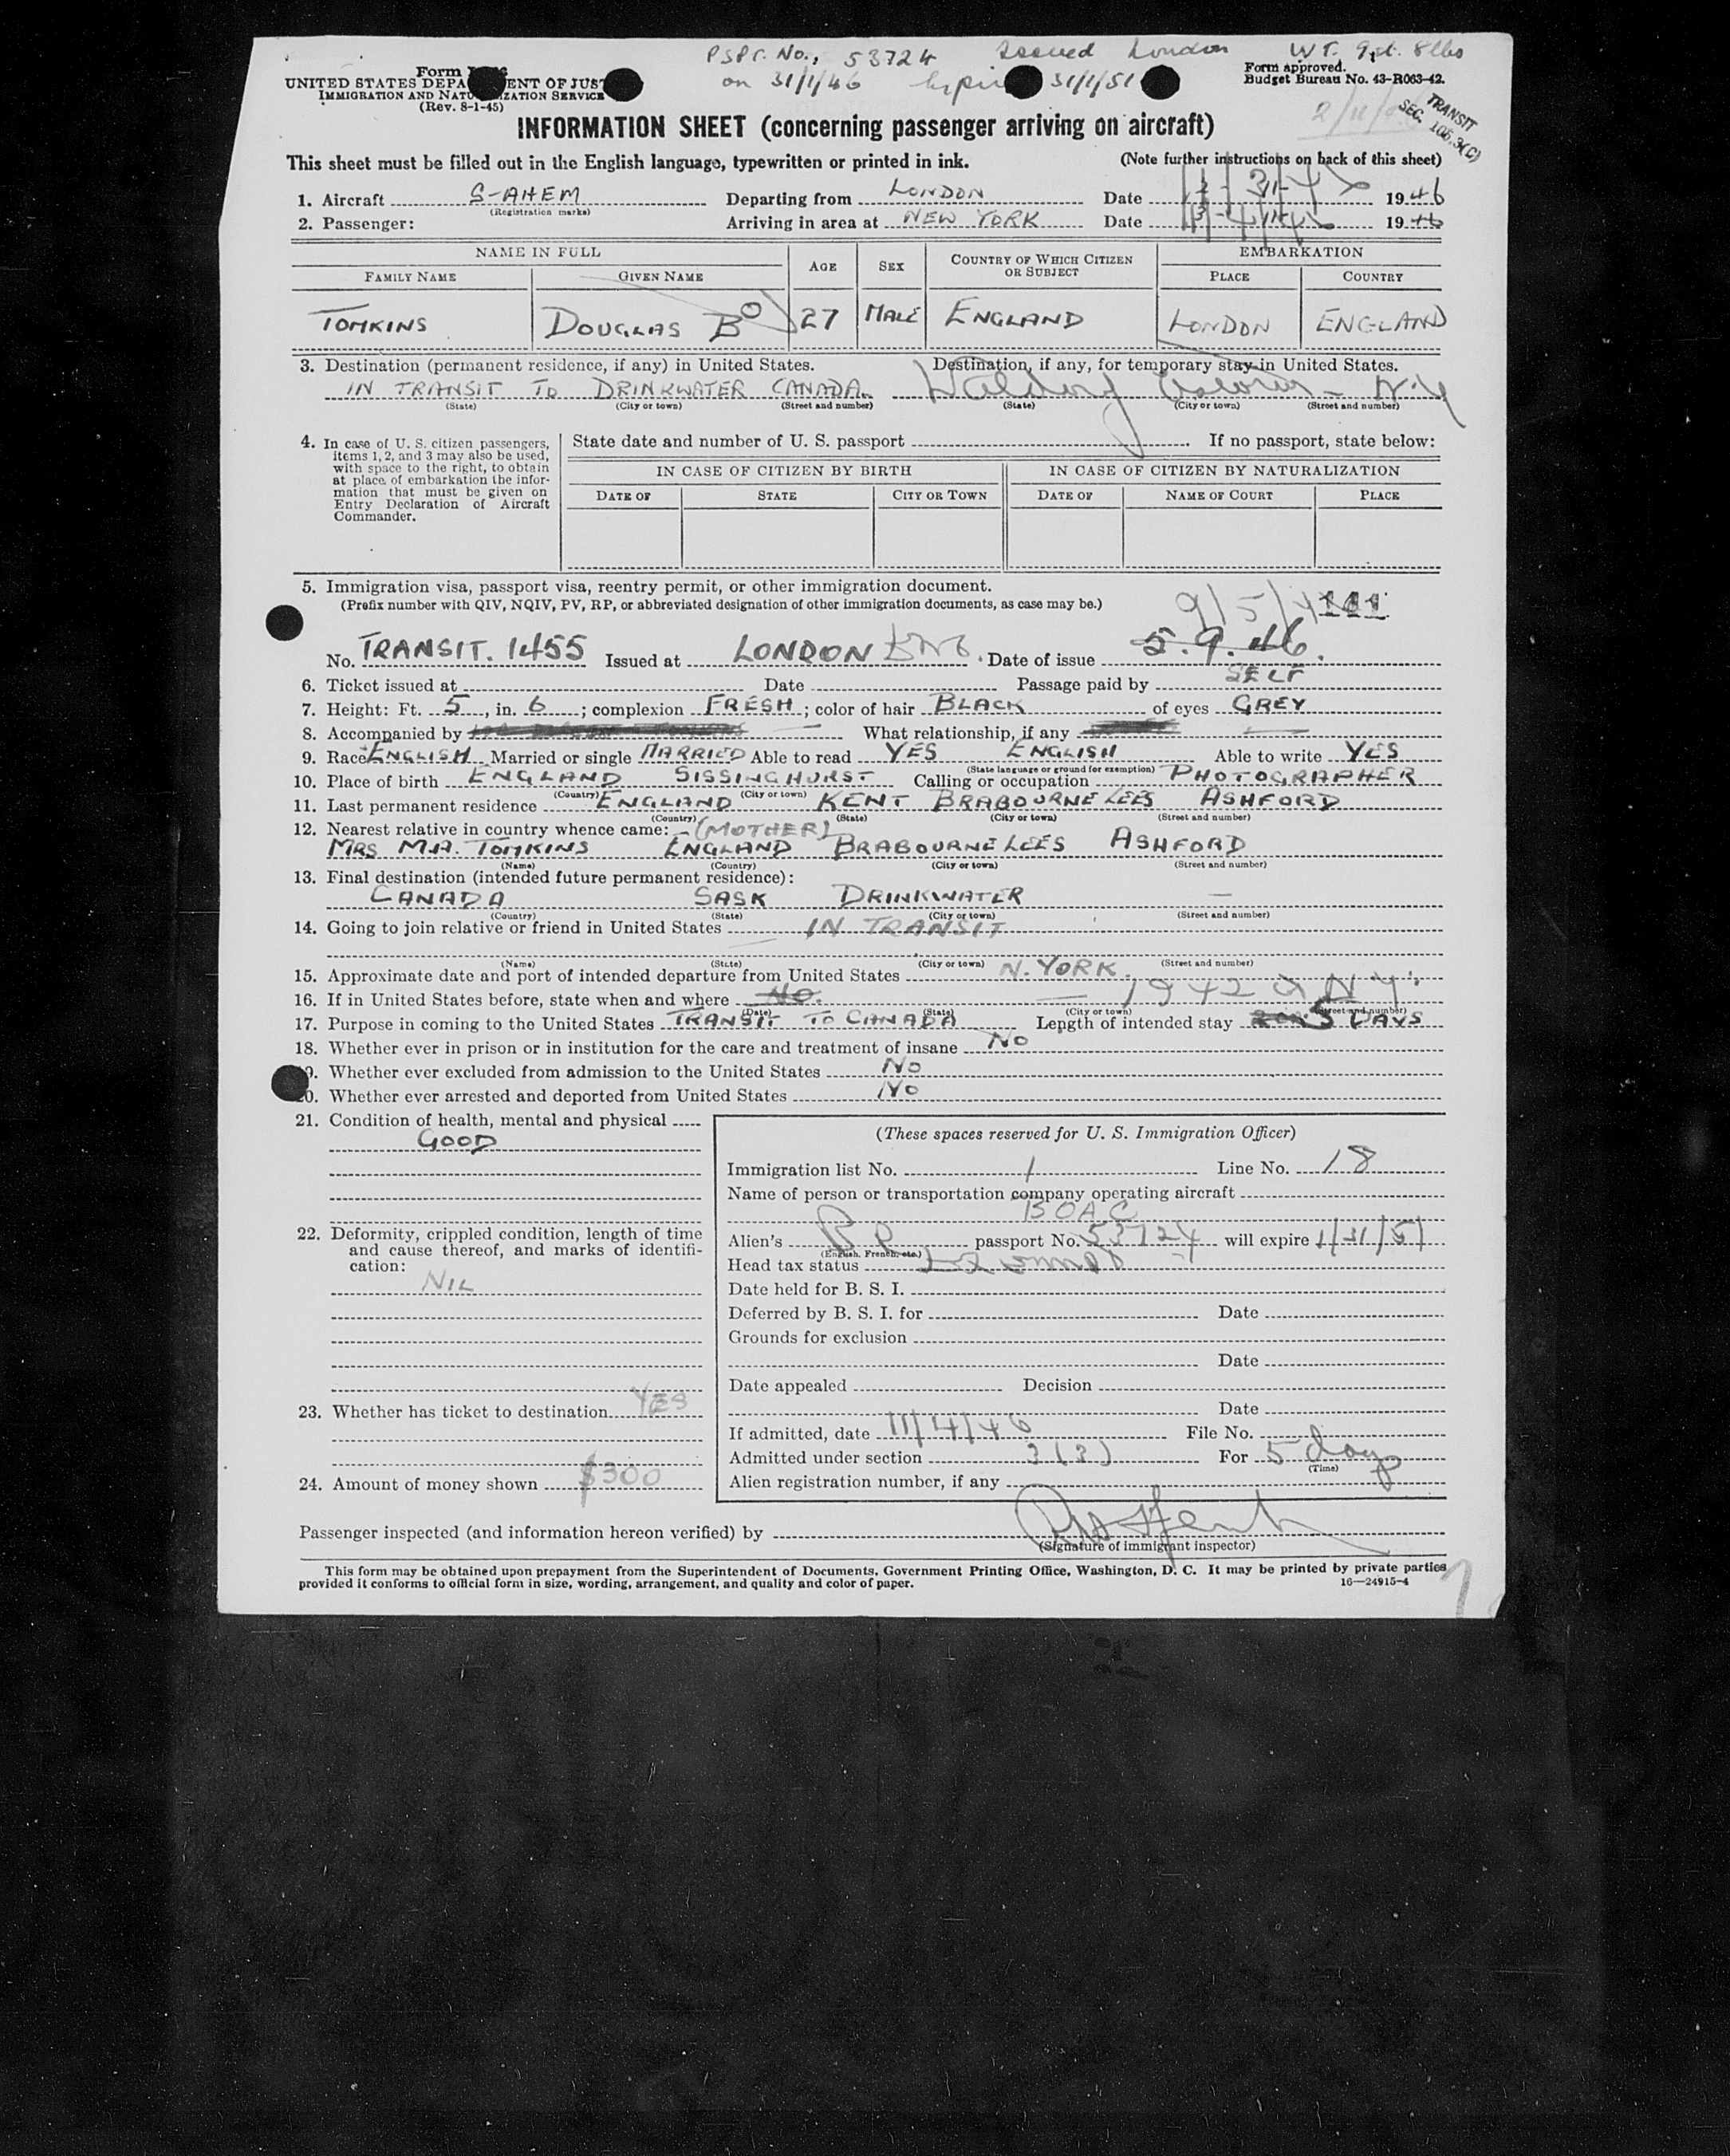 PSPT. No., 53724 Issued London WT. 9st. 8lbs
on 31/1/46 Expires 31/1/51
Form
UNITED STATES DEPA ENT OF JUST
IMMIGRATION AND NATU IZATION SERVICE
(Rev. 8-1-45)
Form approved.
Budget Bureau No. 43-R063-42.
TRANSIT
SEC. 106.3(C)
INFORMATION SHEET (concerning passenger arriving on aircraft)
This sheet must be filled out in the English language, typewritten or printed in ink. (Note further instructions on back of this sheet)
1. Aircraft S-AHEM Departing from LONDON Date 1946
(Registration marks)
2. Passenger: Arriving in area at NEW YORK Date 1946
NAME IN FULL AGE SEX COUNTRY OF WHICH CITIZEN OR SUBJECT EMBARKATION
FAMILY NAME GIVEN NAME PLACE COUNTRY
TOMKINS DOUGLAS B 27 MALE ENGLAND LONDON ENGLAND
3. Destination (permanent residence, if any) in United States. Destination, if any, for temporary stay in United States.
IN TRANSIT TO DRINKWATER CANADA
(State) (City or town) (Street and number) (State) (City or town) (Street and number)
4. In case of U. S. citizen passengers, items 1, 2, and 3 may also be used, with space to the right, to obtain at place of embarkation the information that must be given on Entry Declaration of Aircraft Commander.
State date and number of U. S. passport If no passport, state below:
IN CASE OF CITIZEN BY BIRTH IN CASE OF CITIZEN BY NATURALIZATION
DATE OF STATE CITY OR TOWN DATE OF NAME OF COURT PLACE
5. Immigration visa, passport visa, reentry permit, or other immigration document.
(Prefix number with QIV, NQIV, PV, RP, or abbreviated designation of other immigration documents, as case may be.)
No. TRANSIT. 1455 Issued at LONDON Date of issue 5.9.46.
6. Ticket issued at Date Passage paid by SELF
7. Height: Ft. 5, in. 6; complexion FRESH; color of hair BLACK of eyes GREY
8. Accompanied by What relationship, if any
9. Race ENGLISH Married or single MARRIED Able to read YES ENGLISH Able to write YES
(State language or ground for exemption)
10. Place of birth ENGLAND SISSINGHURST Calling or occupation PHOTOGRAPHER
(Country) (City or town)
11. Last permanent residence ENGLAND KENT BRABOURNE LEES ASHFORD
(Country) (State) (City or town) (Street and number)
12. Nearest relative in country whence came: - (MOTHER)
MRS M.A. TOMKINS ENGLAND BRABOURNE LEES ASHFORD
(Name) (Country) (City or town) (Street and number)
13. Final destination (intended future permanent residence):
CANADA SASK DRINKWATER —
(Country) (State) (City or town) (Street and number)
14. Going to join relative or friend in United States IN TRANSIT
(Name) (State) (City or town) (Street and number)
15. Approximate date and port of intended departure from United States N. YORK.
16. If in United States before, state when and where NO. — 1942 NY
(Date) (State) (City or town) (Street and number)
17. Purpose in coming to the United States TRANSIT TO CANADA Length of intended stay 5 DAYS
18. Whether ever in prison or in institution for the care and treatment of insane NO
19. Whether ever excluded from admission to the United States NO
20. Whether ever arrested and deported from United States NO
21. Condition of health, mental and physical
GOOD
22. Deformity, crippled condition, length of time and cause thereof, and marks of identification:
NIL
23. Whether has ticket to destination YES
24. Amount of money shown $300
(These spaces reserved for U. S. Immigration Officer)
Immigration list No. 1 Line No. 18
Name of person or transportation company operating aircraft
BOAC
Alien's BP passport No. 53724 will expire 1/31/51
(English, French, etc.)
Head tax status
Date held for B. S. I.
Deferred by B. S. I. for Date
Grounds for exclusion
Date
Date appealed Decision
Date
If admitted, date 11/4/46 File No.
Admitted under section 3(3) For 5 days
(Time)
Alien registration number, if any
Passenger inspected (and information hereon verified) by
(Signature of immigrant inspector)
This form may be obtained upon prepayment from the Superintendent of Documents, Government Printing Office, Washington, D. C. It may be printed by private parties
provided it conforms to official form in size, wording, arrangement, and quality and color of paper. 16—24915-4